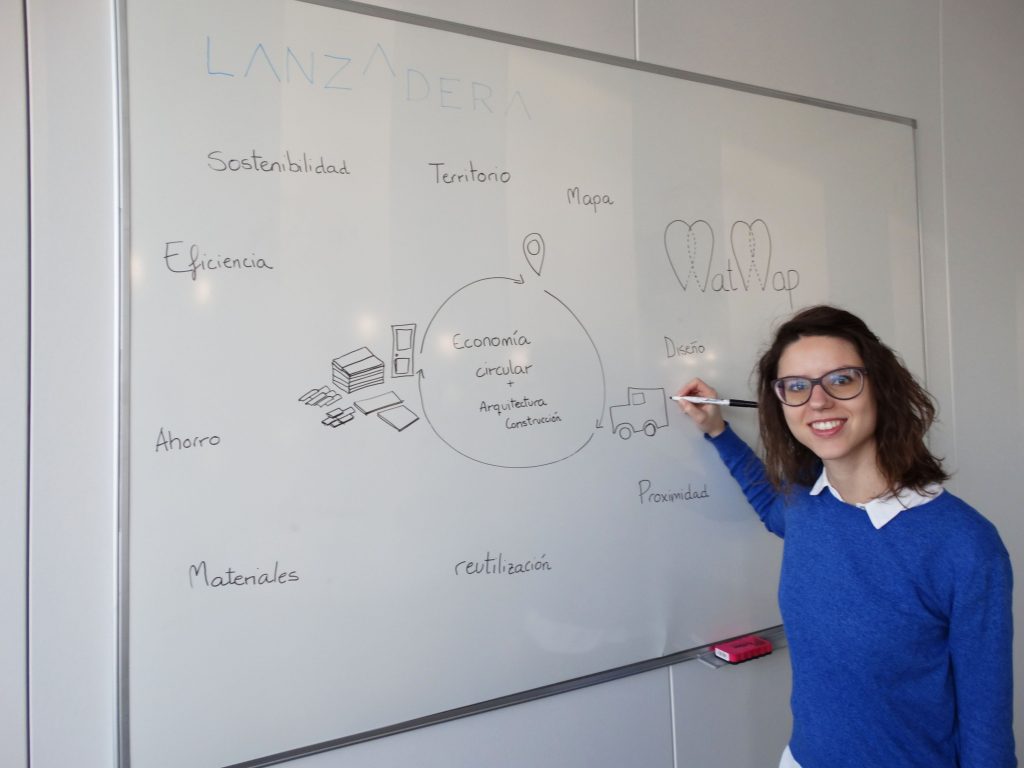 LANZADERA
Sostenibilidad
Territorio
Mapa
Eficiencia
WatWap
Economía
circular
+
Arquitectura
Construcción
Diseño
Ahorro
Proximidad
Materiales
reutilización